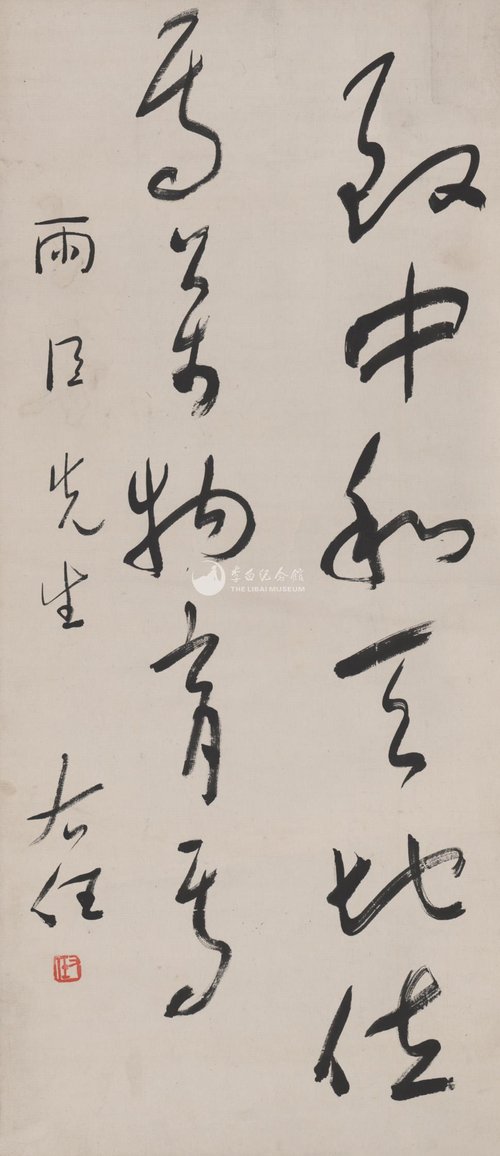 致中和天地位
焉萬物育焉
雨臣先生 右任
李白纪念馆
THE LIBAI MUSEUM